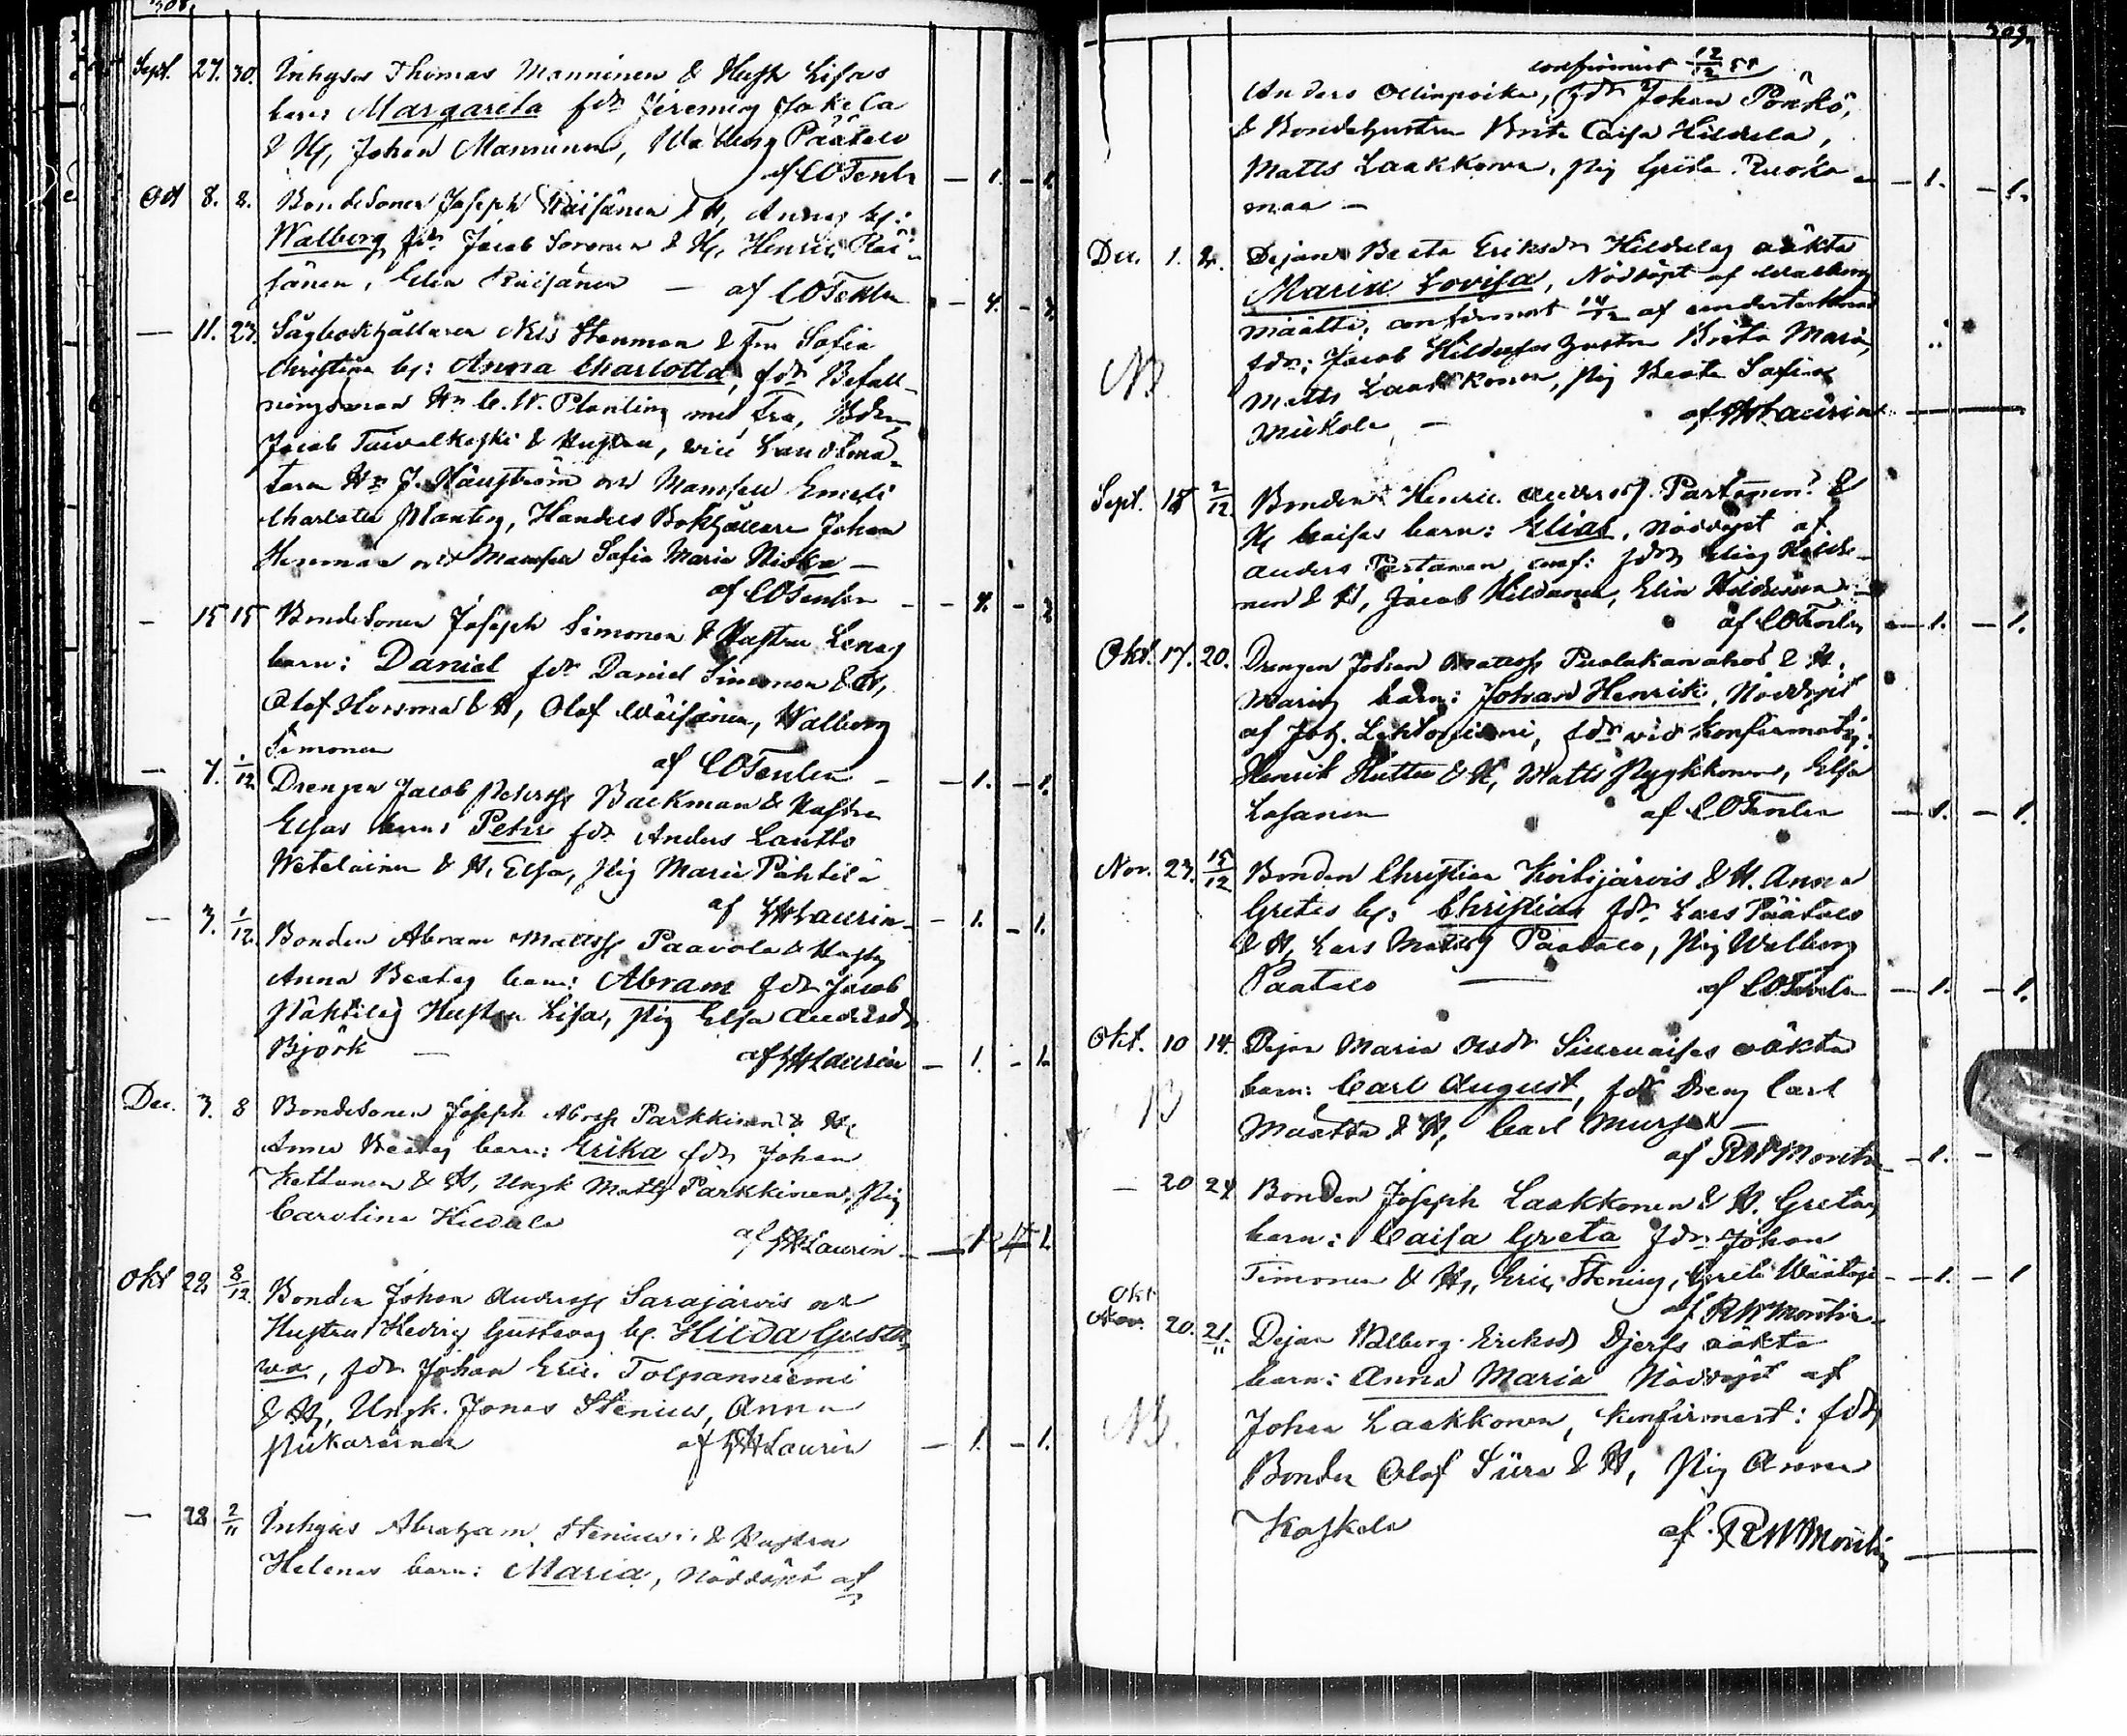 308.
Sept. 27. 30. Inhyses Thomas Manninen & Hustr Lisas
barn: Margareta fdr Jeremias Jokela
& H, Johan Manninen, Walborg Päätalo
af COTenlen — 1. — 1.
Oct 8. 8. Bondesonen Joseph Räisänen & H, Annas b:
Walborg fdr Jacob Soronen & H, Henric Räi-
sänen, Elin Räisänen — af COTenlen — 4. — 3.
— 11. 23. Sågbokhållaren Nils Stenman & Fru Sofia
Christina b: Anna Charlotta, fdr Befall-
ningsman Hr C. W. Planting med Fru, Bdn
Jacob Taivalkoski & Hustru, vice Landtmä-
taren Hr J. Häggström och Mamsell Emeli
Charlotta Planting, Handels Bokhållare Johan
Herman och Mamsell Sofia Maria Niska —
af COTenlen — 4. — 3
— 15 15 Bondesonen Joseph Simonen & Hustru Lenas
barn: Daniel fdr Daniel Simonen & H,
Olof Hursma & H, Olof Wäisänen, Walborg
Simonen af COTenlen — 1. — 1.
— 7. 1/12 Drengen Jacob Peterss Backman & Hustru
Elsas barn: Peter fdr Anders Lautto
Wetelainen & H. Elsa, Pig Maria Pähtilä
af Laurin — 1. — 1.
— 3. 1/12. Bonden Abram Mattss Paavola & Hustr
Anna Beatas barn: Abram fdr Jacob
Pähtilas Hustru Lisa, Pig Elsa Andersdr
Björk — af Laurin — 1. — 1.
Dec. 3. 8 Bondesonen Joseph Abrss Parkkinen & H,
Anna Beatas barn: Erika fdr Johan
Kettunen & H, Ungk Matts Parkkinen, Pig
Carolina Hiedala af Laurin — 1
Okt 22 8/12. Bonden Johan Anderss Sarajärvis och
Hustru Hedvig Gustavas b. Hilda Gusta
va, fdr Johan Eric Tolpanniemi
& H, Ungk. Jonas Stenius, Anna
Pukarainen af Laurin — 1. — 1.
— 28 2/11 Inhyses Abraham Stenius & Hustru
Helenas barn: Maria, Nöddöpt af
309.
confirmert 12/12 55
Anders Ollinpoika, fdr Johan Pönkö,
& Bondehustrun Brita Caisa Hildula,
Matts Laakkonen, Pig Greta Ruoka- — 1. — 1.
maa —
Dec. 1. 2. Dejan Beata Eriksdr Hildulas oäkta
Maria Lovisa, Nöddöpt af Walborg
Määttä, confirmert 14/12 af undertecknad
fdr: Jacob Hildulas hustru Brita Maria,
NB Matts Laakkonen, Pig Beata Sofia
Mükola — af Laurin — —
Sept. 18 2/12 Bonden Henric Anderss. Partanen &
H Caisas barn: Elias, nöddöpt af
Anders Partanen conf: fdr Elias Hilde-
nen & H, Jacob Hildanen, Elin Hildenen —
af COTenlen — 1. — 1.
Okt. 17. 20. Drengen Johan Mattss Puolakanaho & H.
Marias barn: Johan Henrik, Nöddöpt
af Joh. Lehtoniemi, fdr vid konfirmat:
Henrik Huttu & H, Matts Pyykkönen, Elsa
Losanen af COTenlen — 1. — 1.
Nov. 23. 15/12 Bonden Christian Koitijärvis & H. Anna
Gretas b: Christian fdr Lars Päätalo
& H, Lars Mattss Päätalo, Pig Walborg
Päätalo — af COTenlen — 1. — 1.
Okt. 10 14. Dejan Maria Olsdr Siurnaisas oäkta
barn: Carl August, fdr Dreng Carl
Määttä & H, Carl Mursu —
af RWMontin — 1. —
— 20 24 Bonden Joseph Laakkonen & H. Gretas
barn: Caisa Greta fdr Johan
Timonen & H, Eric Stenius, Greta Wäätäjä — 1. — 1
af RWMontin
Okt
Nov. 20. 21/11 Dejan Walborg Ericsdr Djerfs oäkta
barn: Anna Maria Nöddöpt af
NB. Johan Laakkonen, konfirmert: fdr
Bonden Olof Siira & H, Pig Anna
Koskela af RWMontin —